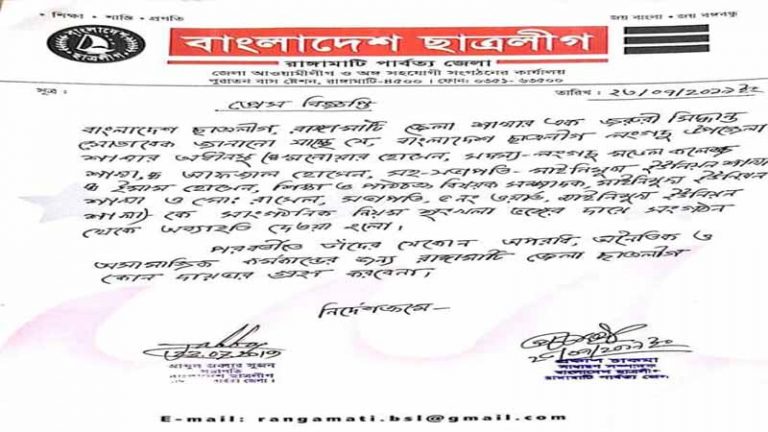 • শিক্ষা • শান্তি • প্রগতি
জয় বাংলা • জয় বঙ্গবন্ধু
বাংলাদেশ ছাত্রলীগ
বাংলাদেশ ছাত্রলীগ
রাঙ্গামাটি পার্বত্য জেলা
জেলা আওয়ামীলীগ ও অঙ্গ সহযোগী সংগঠনের কার্যালয়
পুরাতন বাস ষ্টেশন, রাঙ্গামাটি-৪৫০০ । ফোনঃ ০৩৫১-৬৩৫০০
সূত্র :
তারিখ : ২৩/০৭/২০১৯ ইং
প্রেস বিজ্ঞপ্তি
বাংলাদেশ ছাত্রলীগ, রাঙ্গামাটি জেলা শাখার এক জরুরী সিদ্ধান্ত
মোতাবেক জানানো যাচ্ছে যে, বাংলাদেশ ছাত্রলীগ লংগদু উপজেলা
শাখার অধীনস্থ হোসেন, সদস্য- লংগদু মডেল কলেজ
শাখা, হোসেন, সহ-সভাপতি- মাইনীমুখ ইউনিয়ন শাখা
ইমাম হোসেন, শিক্ষা ও পাঠচক্র বিষয়ক সম্পাদক, মাইনীমুখ ইউনিয়ন
শাখা ও মোঃ রাসেল, সভাপতি, ওয়ার্ড, মাইনীমুখ ইউনিয়ন
শাখা) কে সাংগঠনিক নিয়ম শৃংখলা ভঙ্গের দায়ে সংগঠন
থেকে অব্যাহতি দেওয়া হলো।
পরবর্তীতে তাঁদের যেকোন অপরাধ, অনৈতিক ও
অসামাজিক কর্মকান্ডের জন্য রাঙ্গামাটি জেলা ছাত্রলীগ
কোন দায়ভার গ্রহণ করবেনা।
নির্দেশক্রমে—
আব্দুল জব্বার সুজন
সভাপতি
বাংলাদেশ ছাত্রলীগ
জেলা।
প্রকাশ চাকমা
সাধারণ সম্পাদক
বাংলাদেশ ছাত্রলীগ
রাঙ্গামাটি পার্বত্য জেলা
E-mail: rangamati.bsl@gmail.com